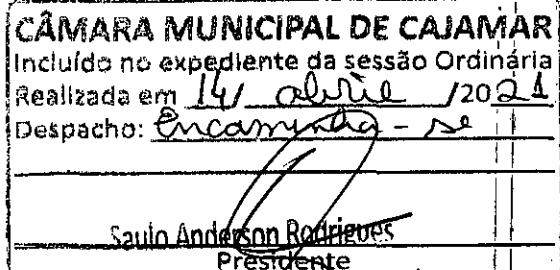 CÂMARA MUNICIPAL DE CAJAMAR
Incluído no expediente da sessão Ordinária
Realizada em 14/ abril /2021
Despacho: Encaminha - se
Saulo Anderson Rodrigues
Presidente